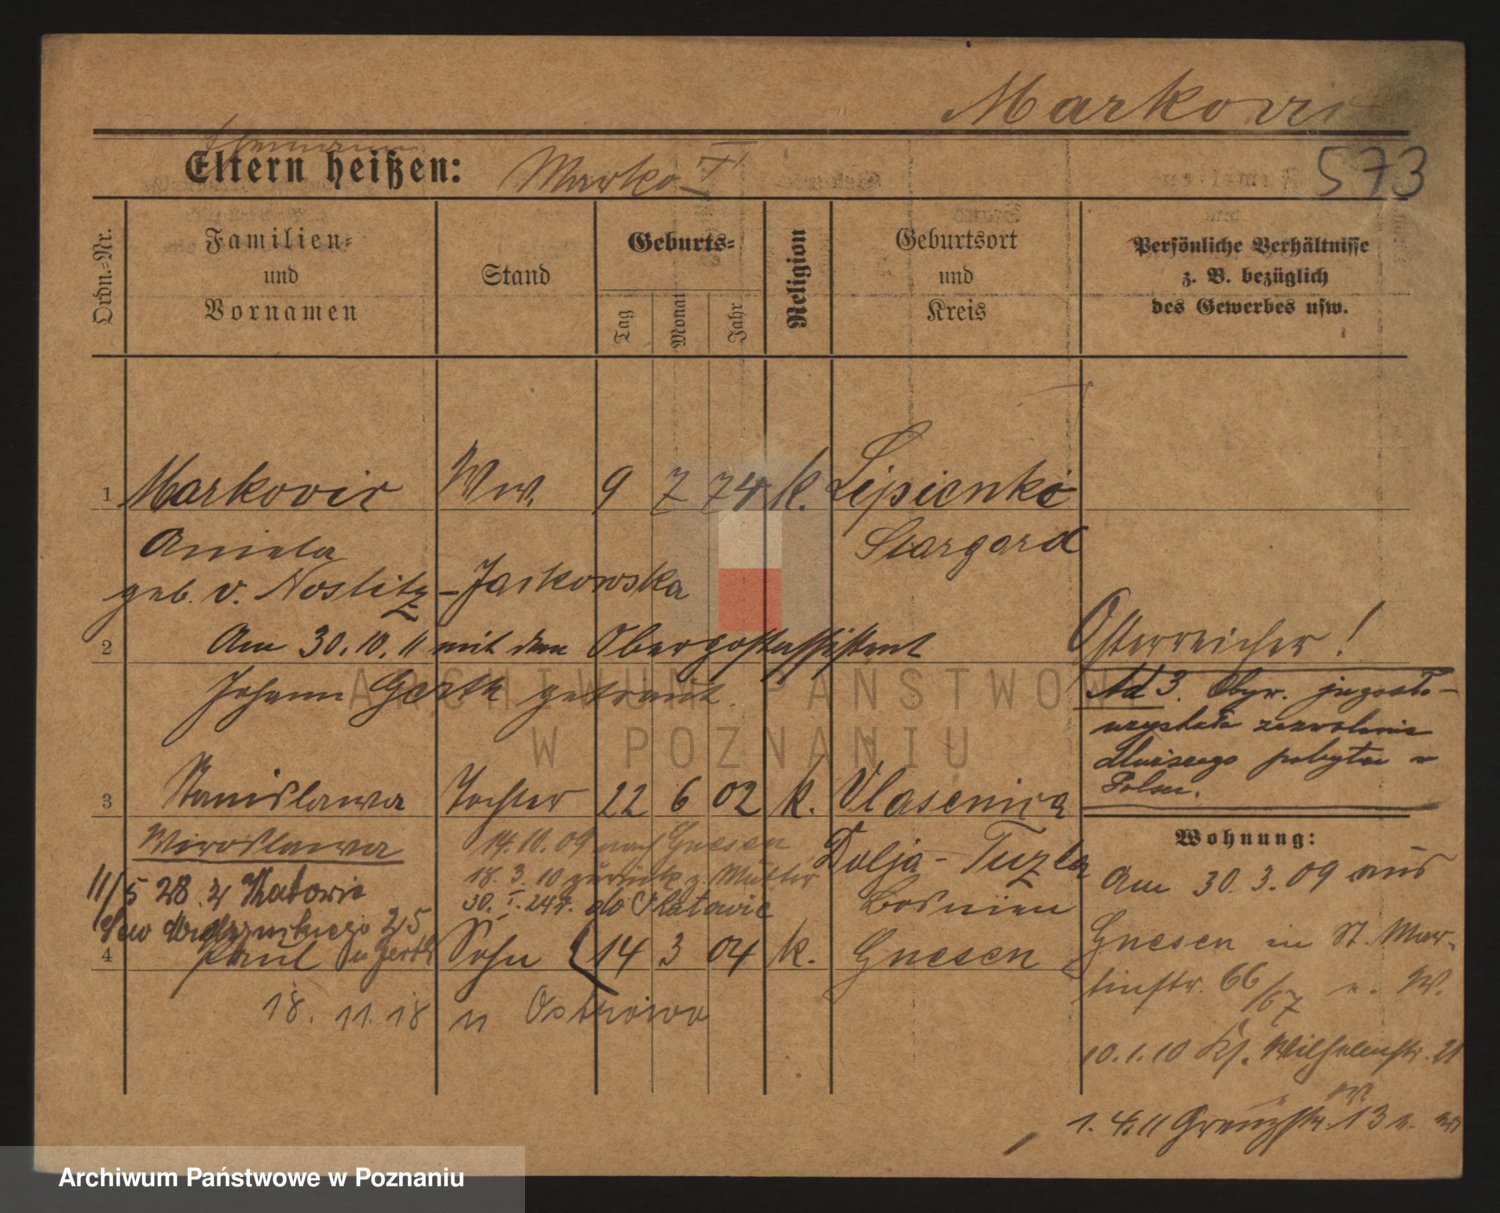 Markovic
Ehemann
Eltern heißen: Marko I
573
Ordn.-Nr.
Familien-
und
Vornamen
Stand
Geburts-
Tag
Monat
Jahr
Religion
Geburtsort
und
Kreis
Persönliche Verhältnisse
z. B. bezüglich
des Gewerbes usw.
1 Markovic Ww. 9 7 74 k. Lipienki
Aniela Stargard
geb. v. Nostitz-Jackowska
2 Am 30.10.11 mit dem Oberpostassistent
Johann Gerth getraut.
Österreicher!
Ad 3. Obyw. jugosło-
uzyskała zezwolenie
dłuższego pobytu w
Polsce.
3 Stanislawa Tochter 22 6 02 k. Vlasenica
Miroslawa 14.10.09 nach Gnesen Dolja-Tuzla
18.3.10 zurück z. Mutter
11/5 28. z Katowic 30.I.24. do Katowic Bosnien
4 Paul Gerth Sohn 14 3 04 k. Gnesen
18.11.18 n Ostrowo
Wohnung:
Am 30.3.09 aus
Gnesen in St. Mar-
tinstr. 66/67 n. W.
10.1.10 Ks. Wilhelmstr. 21
1.4.11 Grenzstr. 13
ARCHIWUM PAŃSTWOWE
W POZNANIU
Archiwum Państwowe w Poznaniu